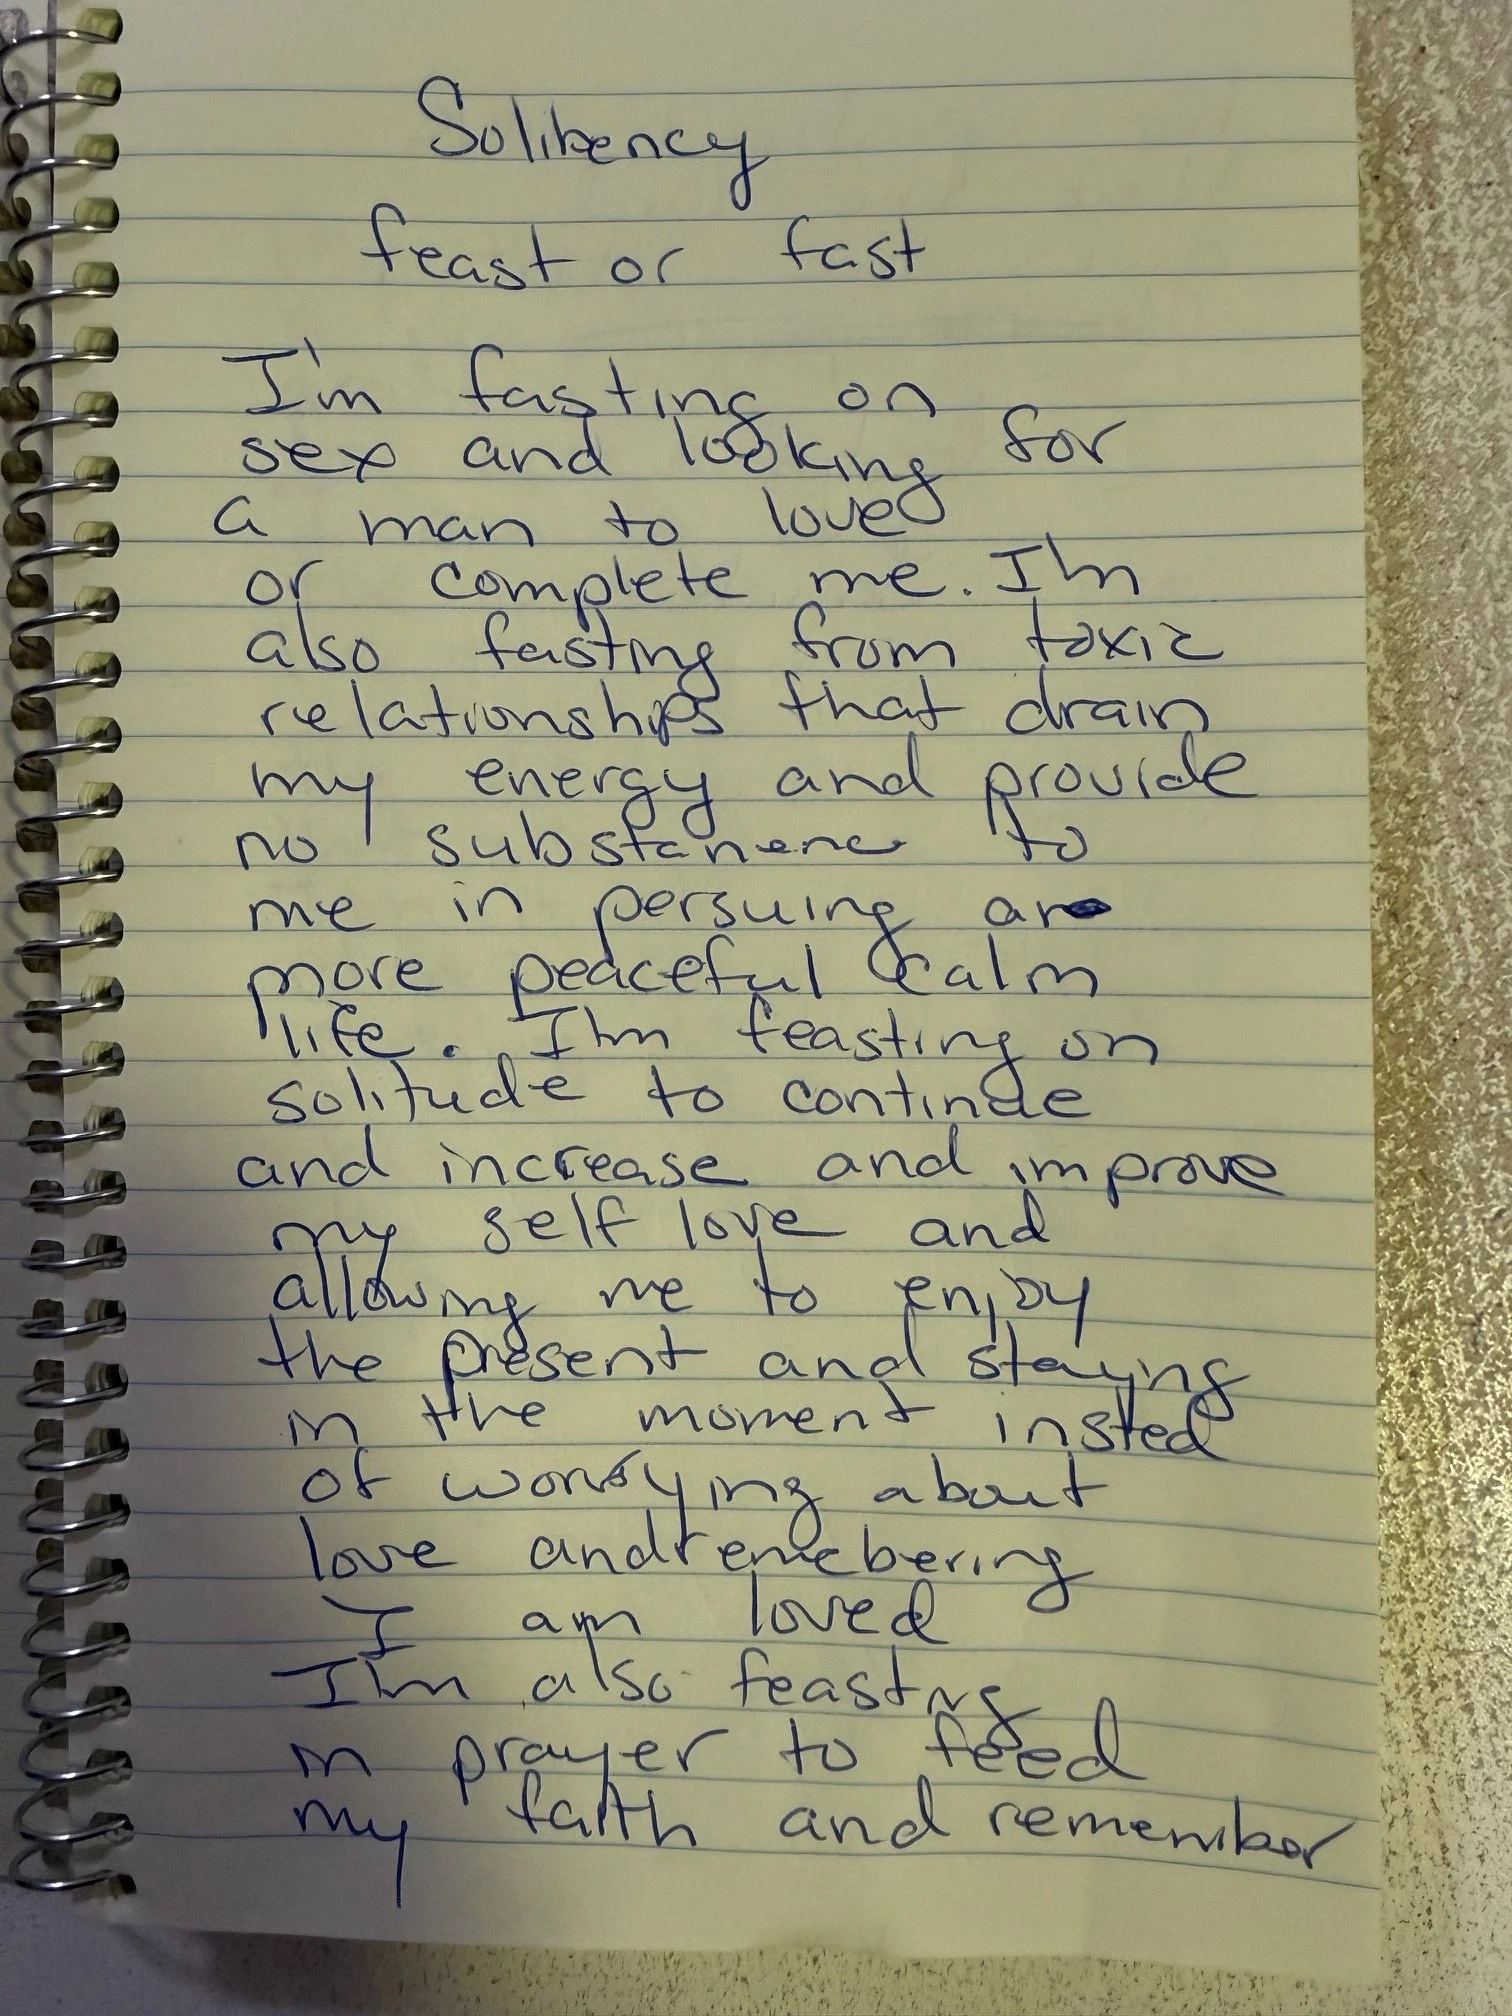 Solibency
feast or fast
I'm fasting on
sex and looking for
a man to love
or complete me. I'm
also fasting from toxic
relationships that drain
my energy and provide
no substanence to
me in persuing a
more peaceful calm
life. I'm feasting on
solitude to continue
and increase and improve
my self love and
allowing me to enjoy
the present and staying
in the moment insted
of worrying about
love and remebering
I am loved
I'm also feasting
in prayer to feed
my faith and remember